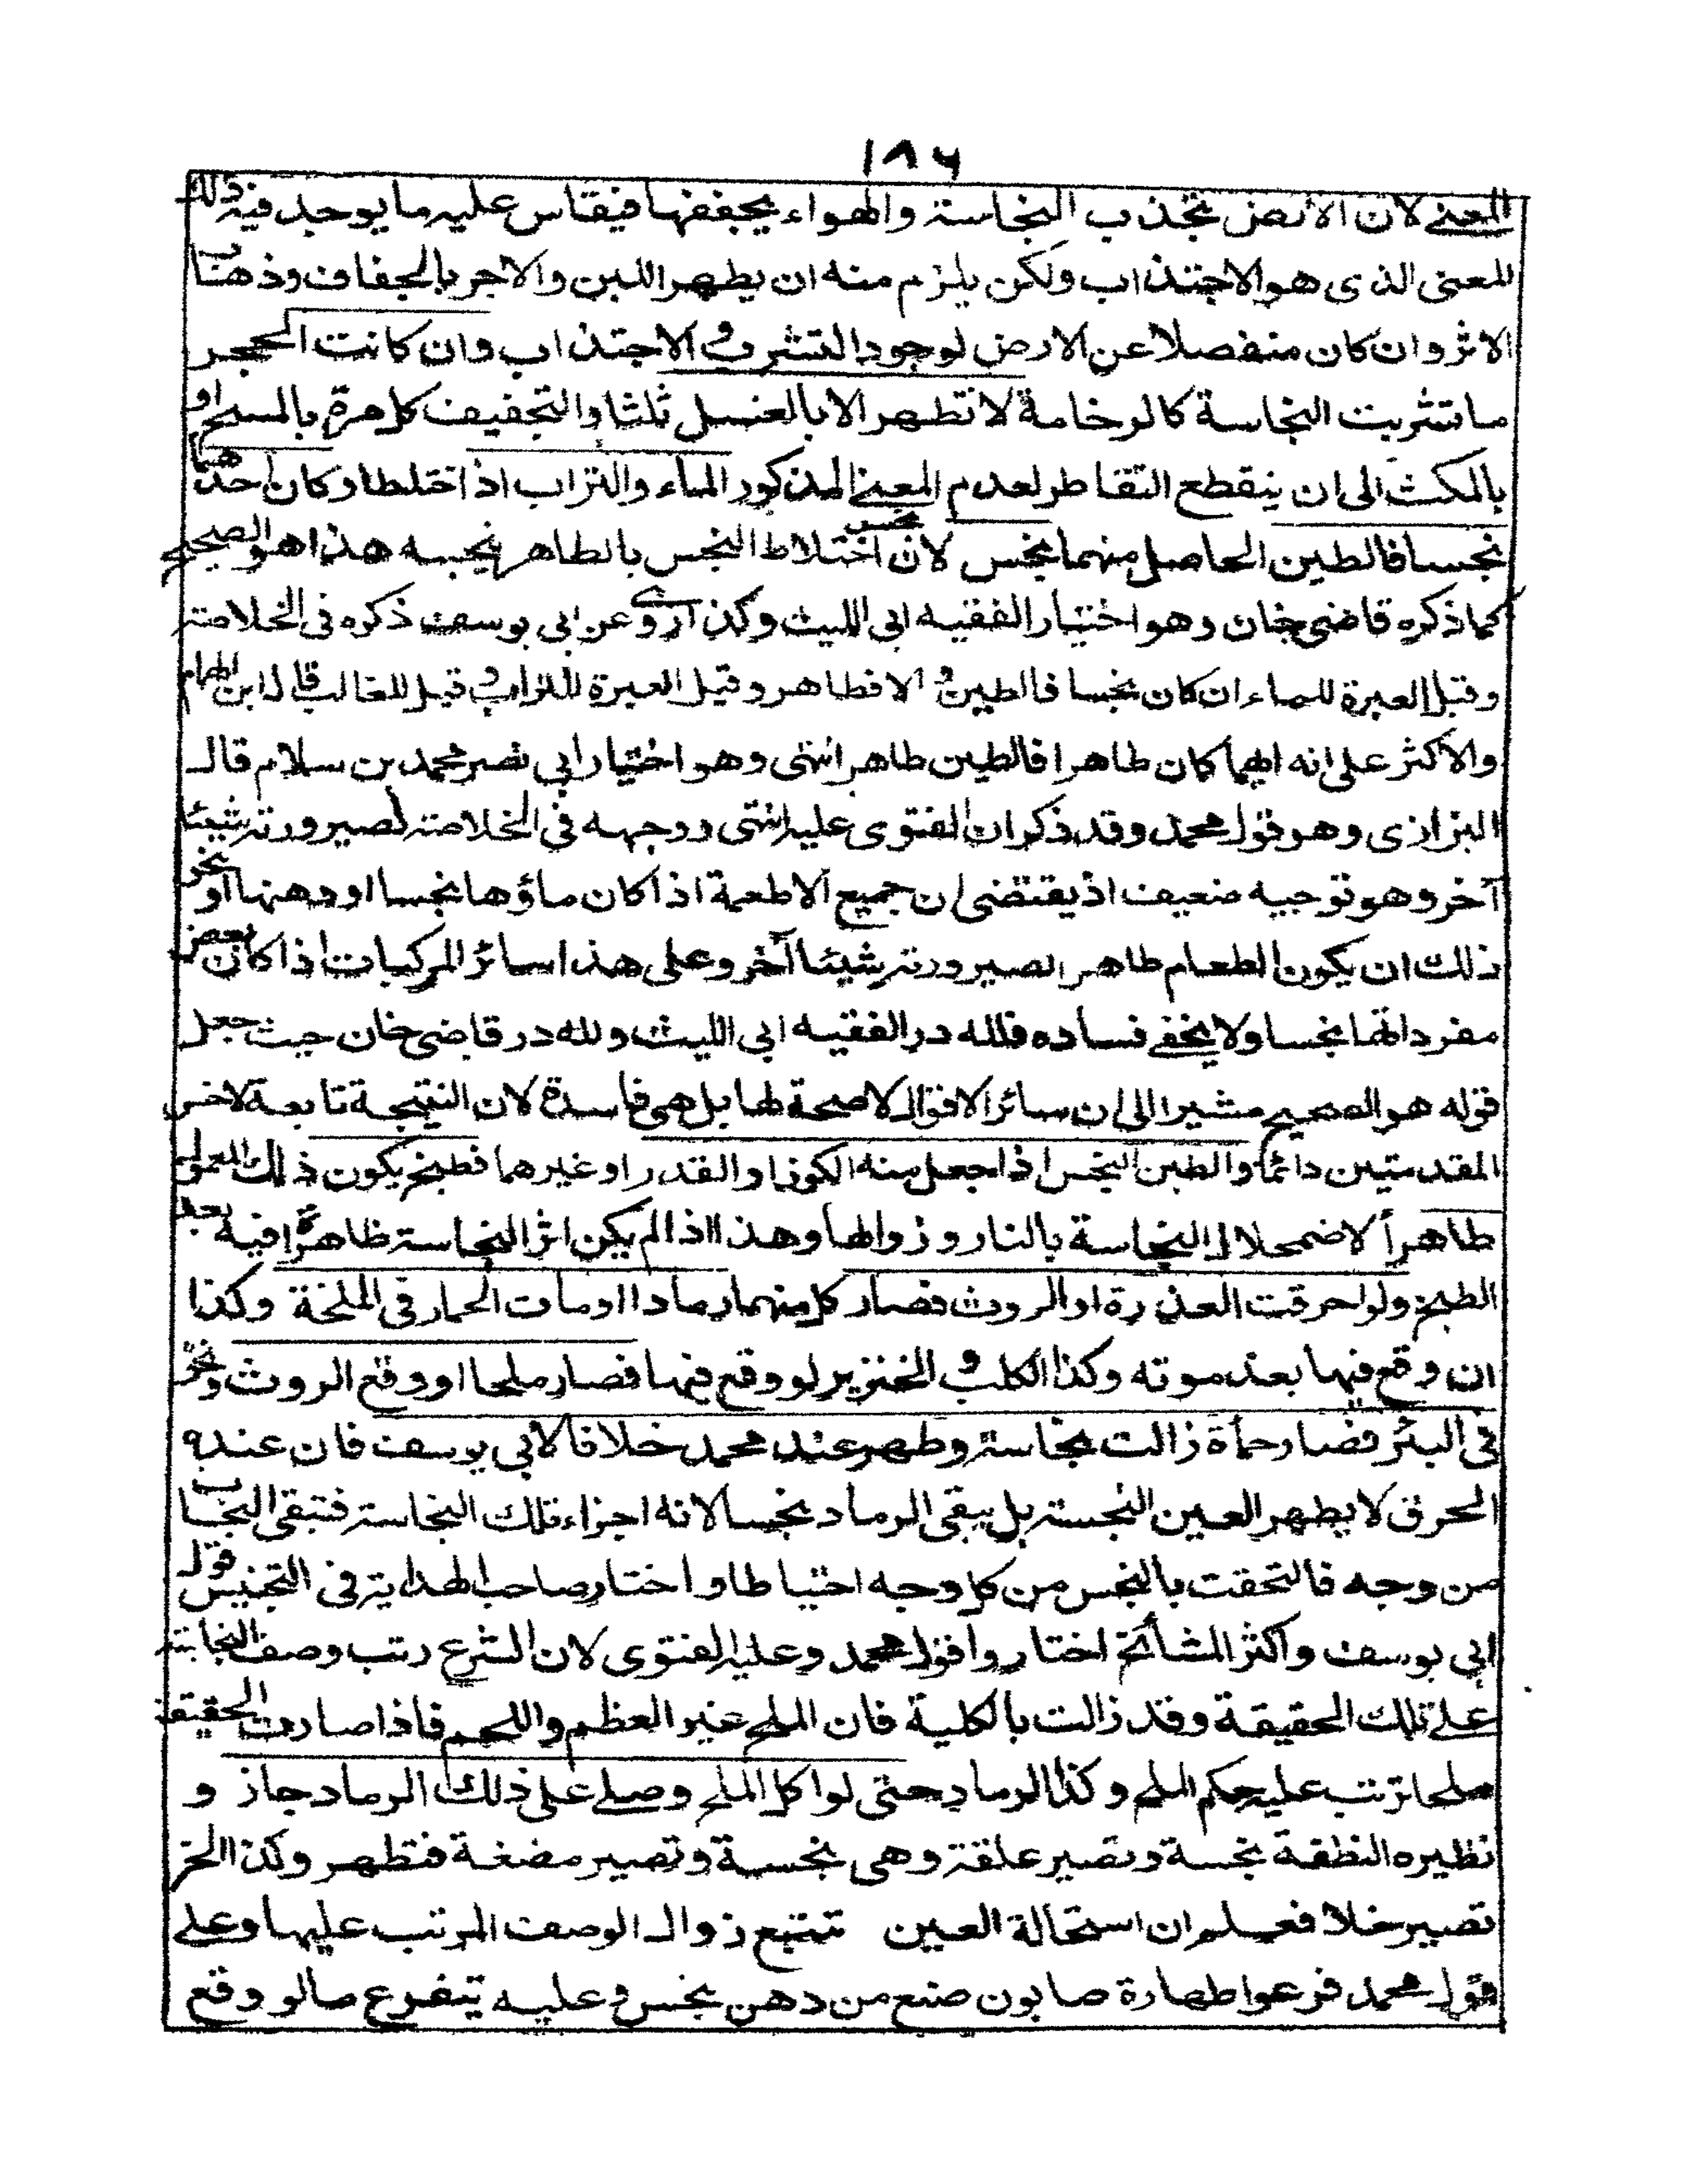 ١٨٦
المعنى لان الارض تجذب النجاسة والهواء يجففها فيقاس عليه ما يوجد فيه ذلك
المعنى الذى هو الاجتذاب ولكن يلزم منه ان يطهر اللبن والآجر بالجفاف وذهاب
الاثر وان كان منفصلا عن الارض لوجود التشرب و الاجتذاب وان كانت الحجر
ما تشربت النجاسة كالرخامة لا تطهر الا بالغسل ثلثا والتجفيف كل مرة بالمسح او
بالمكث الى ان ينقطع التقاطر لعدم المعنى المذكور الماء والتراب اذا اختلطا وكان احدهما
نجسا فالطين الحاصل منهما نجس لان اختلاط النجس بالطاهر ينجسه هذا هو الصحيح
كما ذكره قاضى خان وهو اختيار الفقيه ابى الليث وكذا روى عن ابى يوسف ذكره فى الخلاصة
وقيل العبرة للماء ان كان نجسا فالطين و الا فطاهر وقيل العبرة للتراب و قيل للغالب قال ابن الهمام
والاكثر على انه ايهما كان طاهرا فالطين طاهر انتهى وهو اختيار ابى نصر محمد بن سلام قال
البزازى وهو قول محمد وقد ذكر ان الفتوى عليه انتهى ووجهه فى الخلاصة لصيرورته شيئا
آخر وهو توجيه ضعيف اذ يقتضى ان جميع الاطعمة اذا كان ماؤها نجسا او دهنها او نحو
ذلك ان يكون الطعام طاهرا لصيرورته شيئا آخر وعلى هذا سائر المركبات اذا كان بعض
مفرداتها نجسا ولا يخفى فساده فلله در الفقيه ابى الليث ولله در قاضى خان حيث جعل
قوله هو الصحيح مشيرا الى ان سائر الاقوال لا صحة لها بل هى فاسدة لان النتيجة تابعة لاخس
المقدمتين دائما والطين النجس اذا جعل منه الكوز او القدر او غيرهما فطبخ يكون ذلك المعمول
طاهرا لاضمحلال النجاسة بالنار وزوالها وهذا اذا لم يكن اثر النجاسة ظاهرا فيه بعد
الطبخ ولو احرقت العذرة او الروث فصار كل منهما رمادا او مات الحمار فى الملحة وكذا
ان وقع فيها بعد موته وكذا الكلب و الخنزير لو وقع فيها فصار ملحا او وقع الروث ونحو
فى البئر فصار حمأة زالت نجاسته وطهر عند محمد خلافا لابى يوسف فان عنده
الحرق لا يطهر العين النجسة بل يبقى الرماد نجسا لانه اجزاء تلك النجاسة فتبقى النجاسة
من وجه فالتحقت بالنجس من كل وجه احتياطا واختار صاحب الهداية فى التجنيس قول
ابى يوسف واكثر المشائخ اختاروا قول محمد وعليه الفتوى لان الشرع رتب وصف النجاسة
على تلك الحقيقة وقد زالت بالكلية فان الملح غير العظم واللحم فاذا صارت الحقيقة
ملحا ترتب عليه حكم الملح وكذا الرماد حتى لو اكل الملح وصلى على ذلك الرماد جاز و
نظيره النطفة نجسة وتصير علقة وهى نجسة وتصير مضغة فتطهر وكذا الخمر
تصير خلا فعلم ان استحالة العين تتبع زوال الوصف المرتب عليها وعلى
قول محمد فرعوا طهارة صابون صنع من دهن نجس و عليه يتفرع مالو وقع